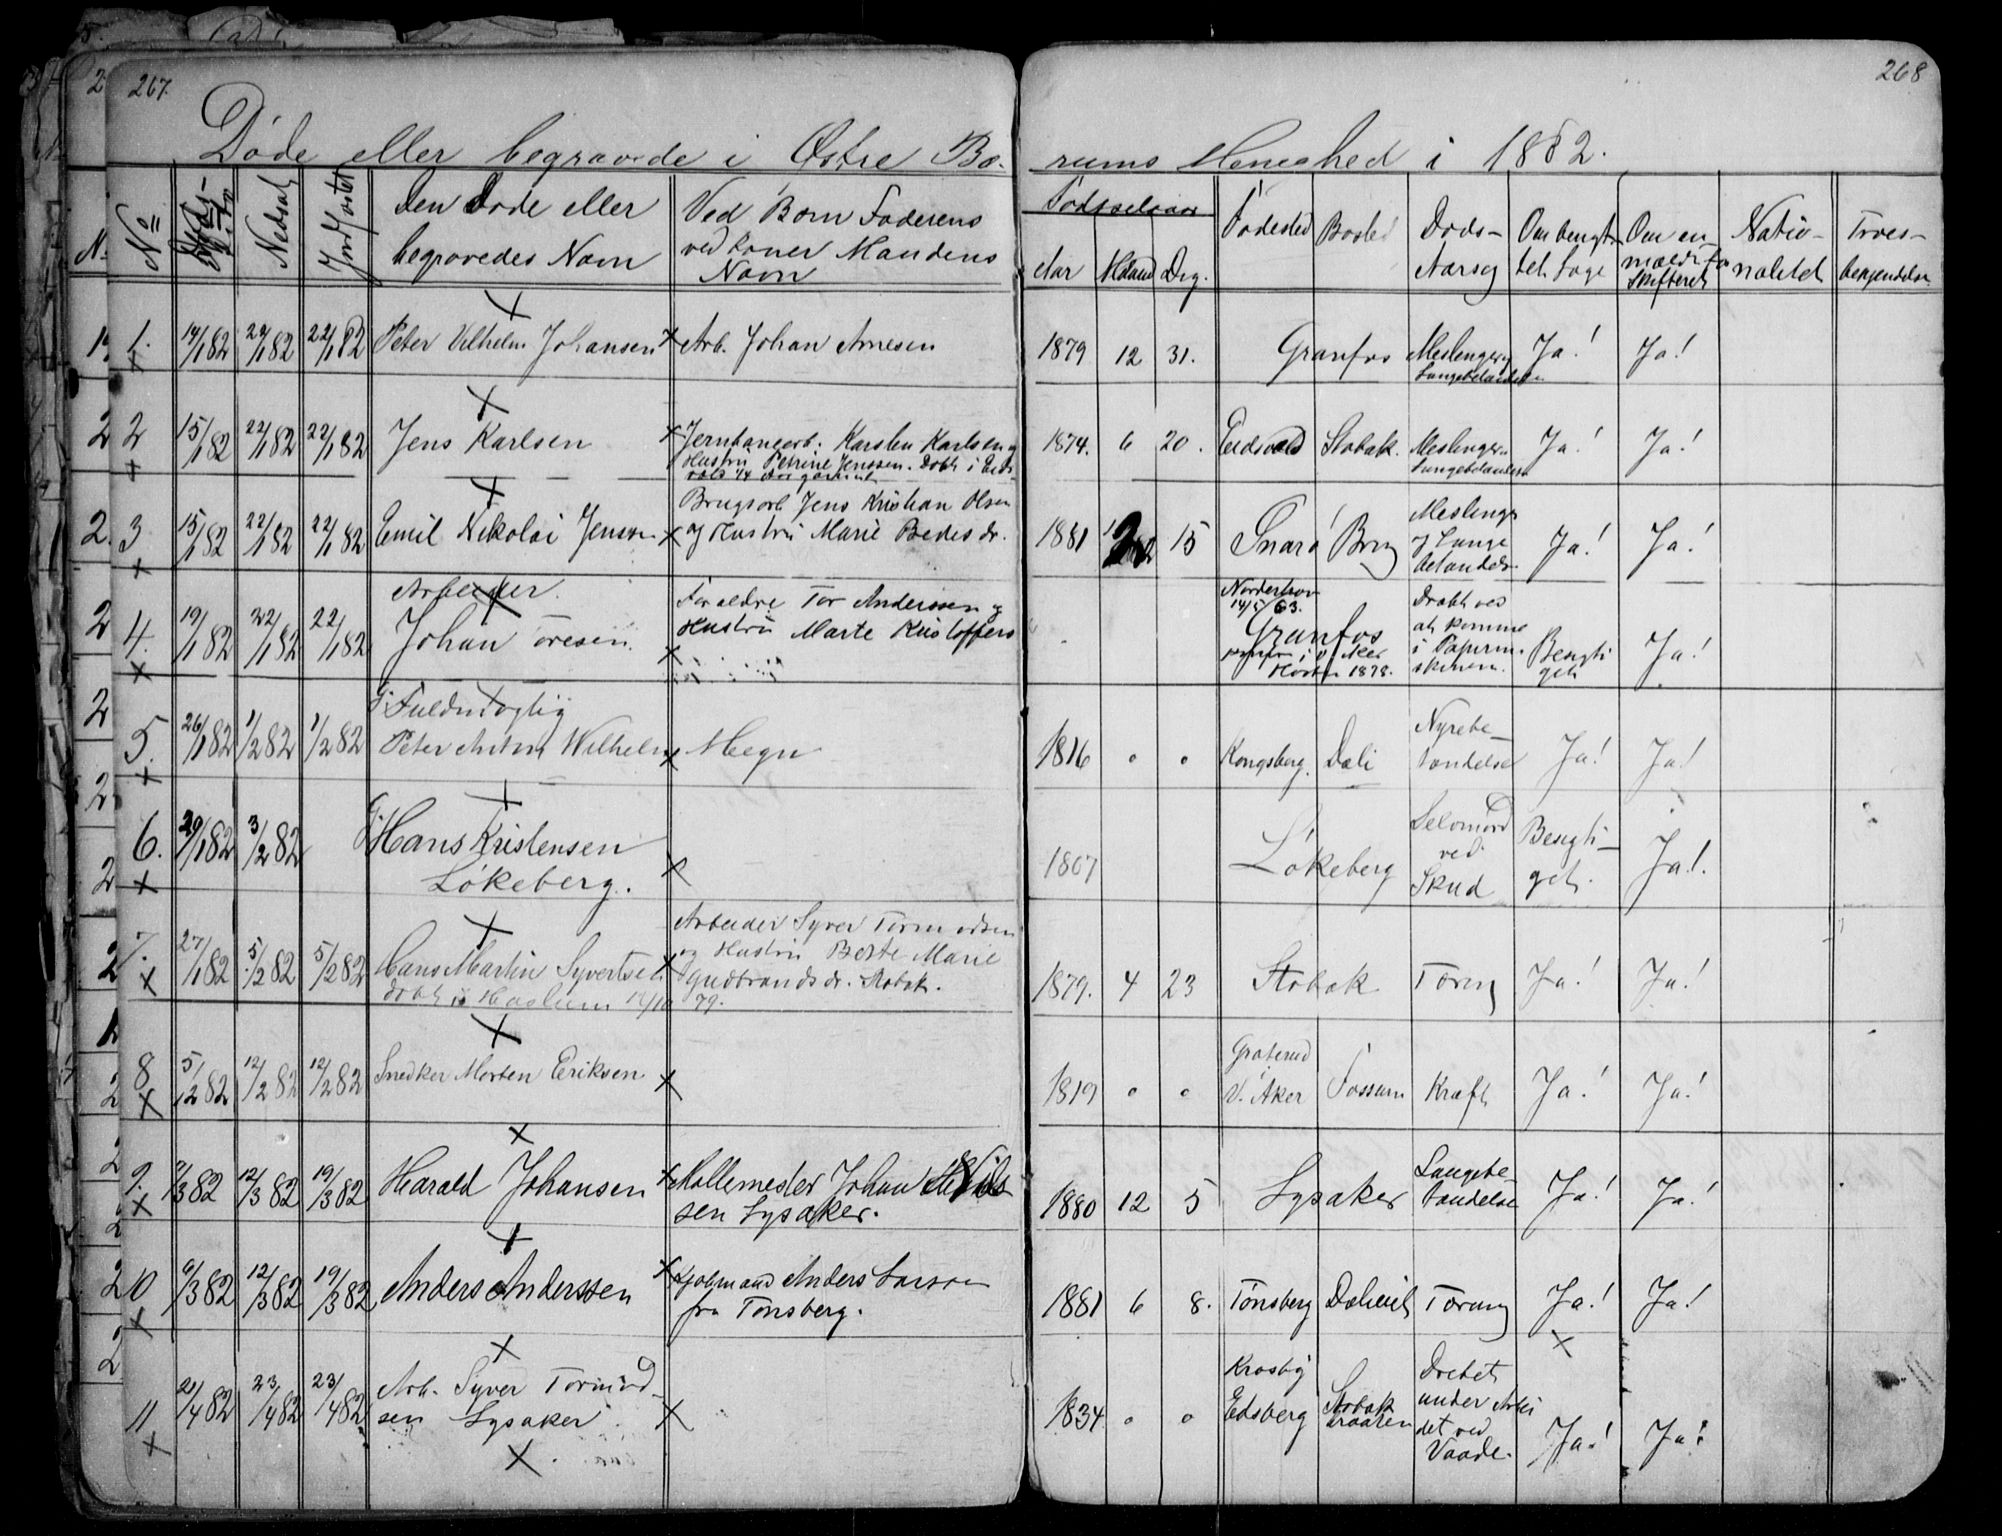 267.
268
Døde eller begravede i Østre Bæ-
rums Menighed i 1882.
No
Nedsat
Jordfæstet
Den Døde eller
begravedes Navn
Ved Børn Faderens
ved Koner Mandens
Navn
Fødselsaar
Aar
Maand
Dag.
Fødested
Bosted
Døds-
Aarsag
Om besigti-
Om an-
Skifteret
Natio-
nalitet
Troes-
bekjendelse
1. 14/1 82 22/1 82 22/1 82 Peter Vilhelm Johansen Arb. Johan Arnesen 1879 12 31. Granfos Meslinger og Ja! Ja!
Lungebetændelse
2 15/1 82 22/1 82 22/1 82 Jens Karlsen Jernbanearb. Karsten Karlsen og 1874. 6 20. Eidsvold Stabæk. Meslinger Ja! Ja!
Hustru Petrine Jenssen. Døbt i Eids-
Lungebetændelse
3 15/1 82 22/1 82 22/1 82 Emil Nikolai Jensen Brugsarb. Jens Kristian Olsen
og Hustru Marie Pedersdr. 1881 15 Snarø Brug Meslinger
og Lunge
betændels. Ja! Ja!
Arbeider
4. 19/1 82 22/1 82 22/1 82 Johan Toresen Forældre Tor Anderssen og
Hustru Marte Kristoffers
Norderhov
14/5 63.
Granfos
Høsten 1878.
Dræbt ved
at komme
i Papirma-
skinen. Besigti
get Ja!
Fuldmægtig
5. 26/1 82 1/2 82 1/2 82 Peter Anton Wilhelm Megn 1816 " " Kongsberg. Dæli Nyrebe-
tændelse Ja! Ja!
6. 29/1 82 3/2 82 Hans Kristensen
Løkeberg. 1807 Løkeberg Selvmord
ved
Skud Besigti-
get. Ja!
7. 27/1 82 5/2 82 5/2 82 Hans Martin Syvertsen
døbt i Haslum 12/10 79.
Arbeider Syver Tormodsen
og Hustru Berte Marie
Gudbrandsdr. Stabæk. 1879. 4 23 Stabæk Tæring Ja! Ja!
8 5/2 82 12/2 82 12/2 82 Snedker Morten Eriksen 1819 " " Graterud
V. Aker Fossum Kræft Ja! Ja!
9. /3 82 12/3 82 19/3 82 Harald Johansen Møllemester Johan Nils-
sen Lysaker. 1880 12 5 Lysaker Lungebe-
tændelse Ja! Ja!
10 6/3 82 12/3 82 19/3 82 Anders Anderssen Kjøbmand Anders Larsen
fra Tønsberg. 1881 6 8. Tønsberg Tæring Ja! Ja!
11 21/4 82 23/4 82 23/4 82 Arb. Syver Tormod-
sen Lysaker 1834 " " Krosby
Edsberg Stabæk
braaten Dræbet
under Arbei
det ved
Vaade. Ja! Ja!